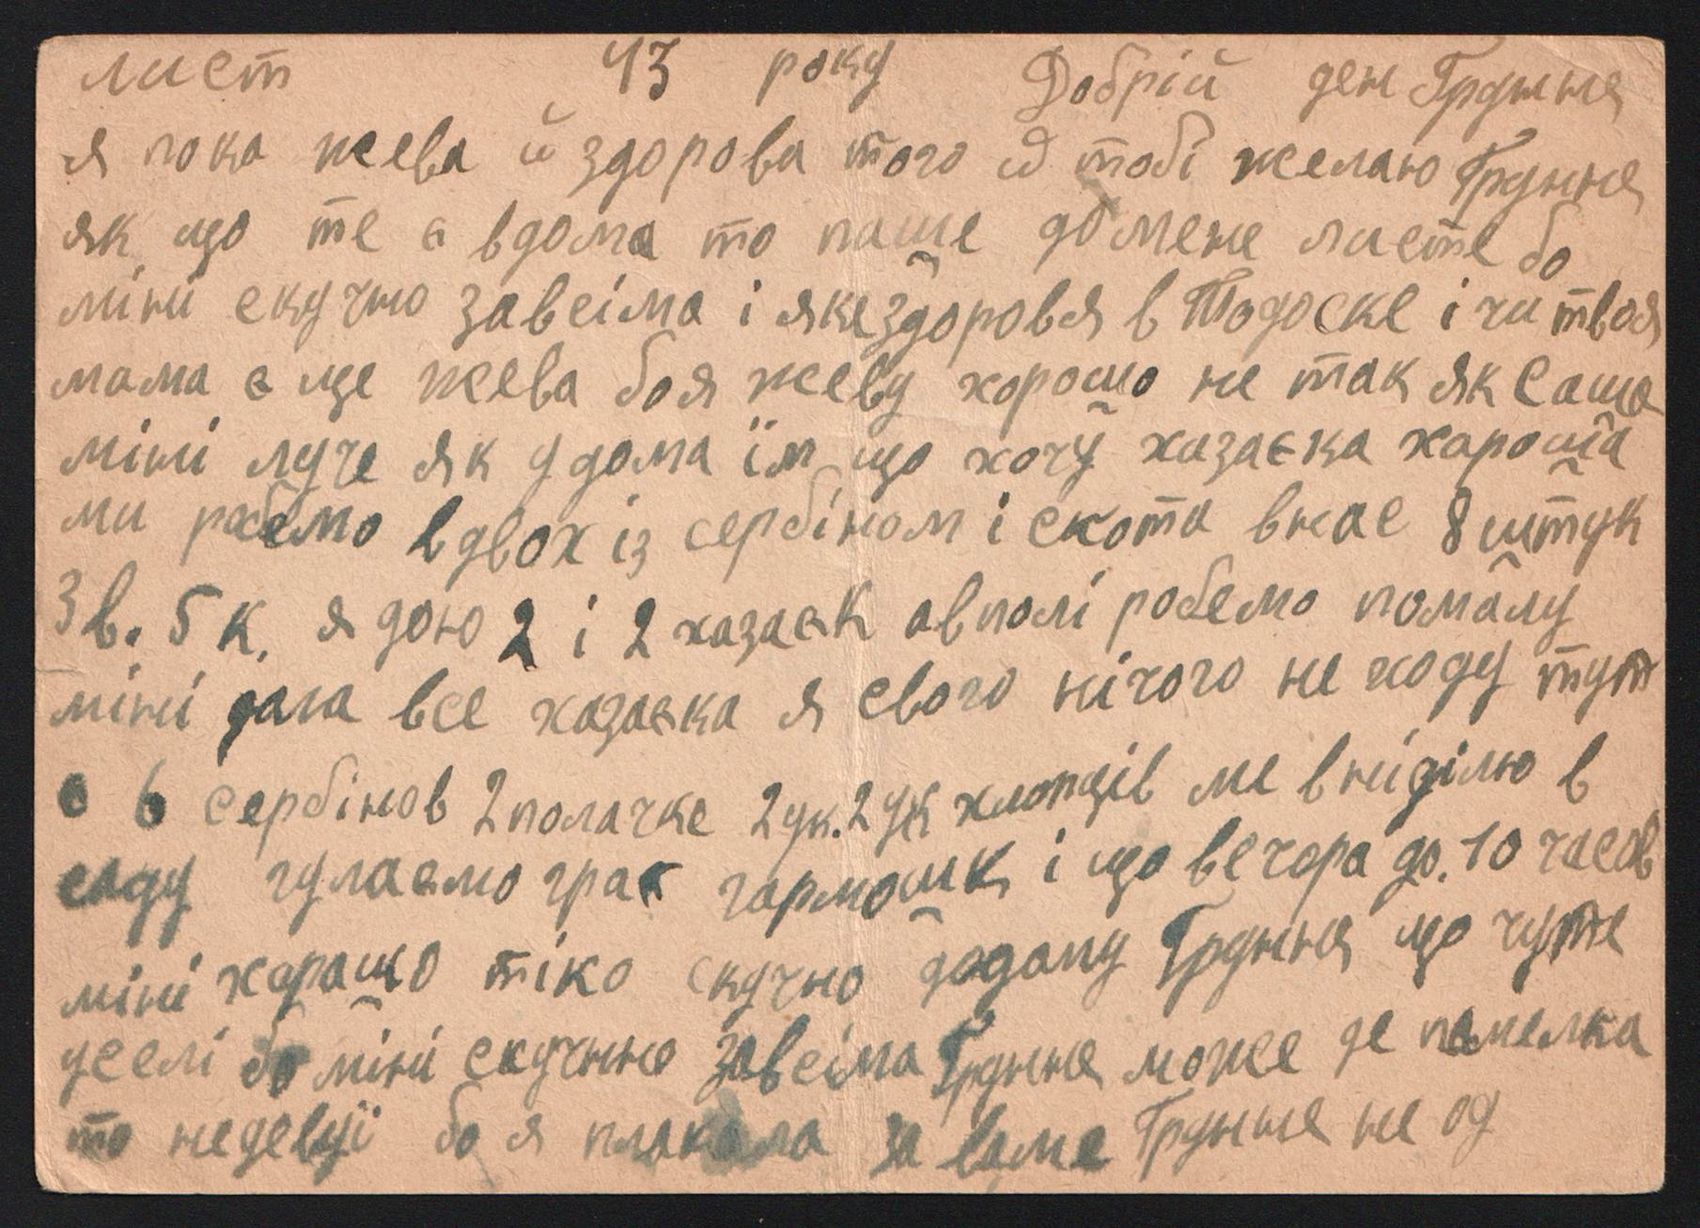 лист 43 року Добрій ден Грунне
я пока жева й здорова того й тобі желаю Грунне
як що те є вдома то паше до мене листе бо
міні скучно завсіма і яке здоровя в Тодоске і чи твоя
мама є ще жева бо я жеву хорошо не так як Саша
міні луче як удома їм що хочу хазаєка хароша
ми робемо вдвох із сербіном і скота внас 8 штук
3 в. 5 к. я дою 2 і 2 хазаєк авполі робемо помалу
міні дала все хазаєка я свого нічого не ходу тут
є 6 сербінов 2 полачке 2 ук. 2 ук хлопців ме вниділю в
саду гуляємо грає гармошк і що вечора до. 10 часов
міні харашо тіко скучно додому Грунне що чуте
уселі бо міні скучнно завсіма Грунне може де памелка
то недевуї бо я плакала за ваме Грунне не од